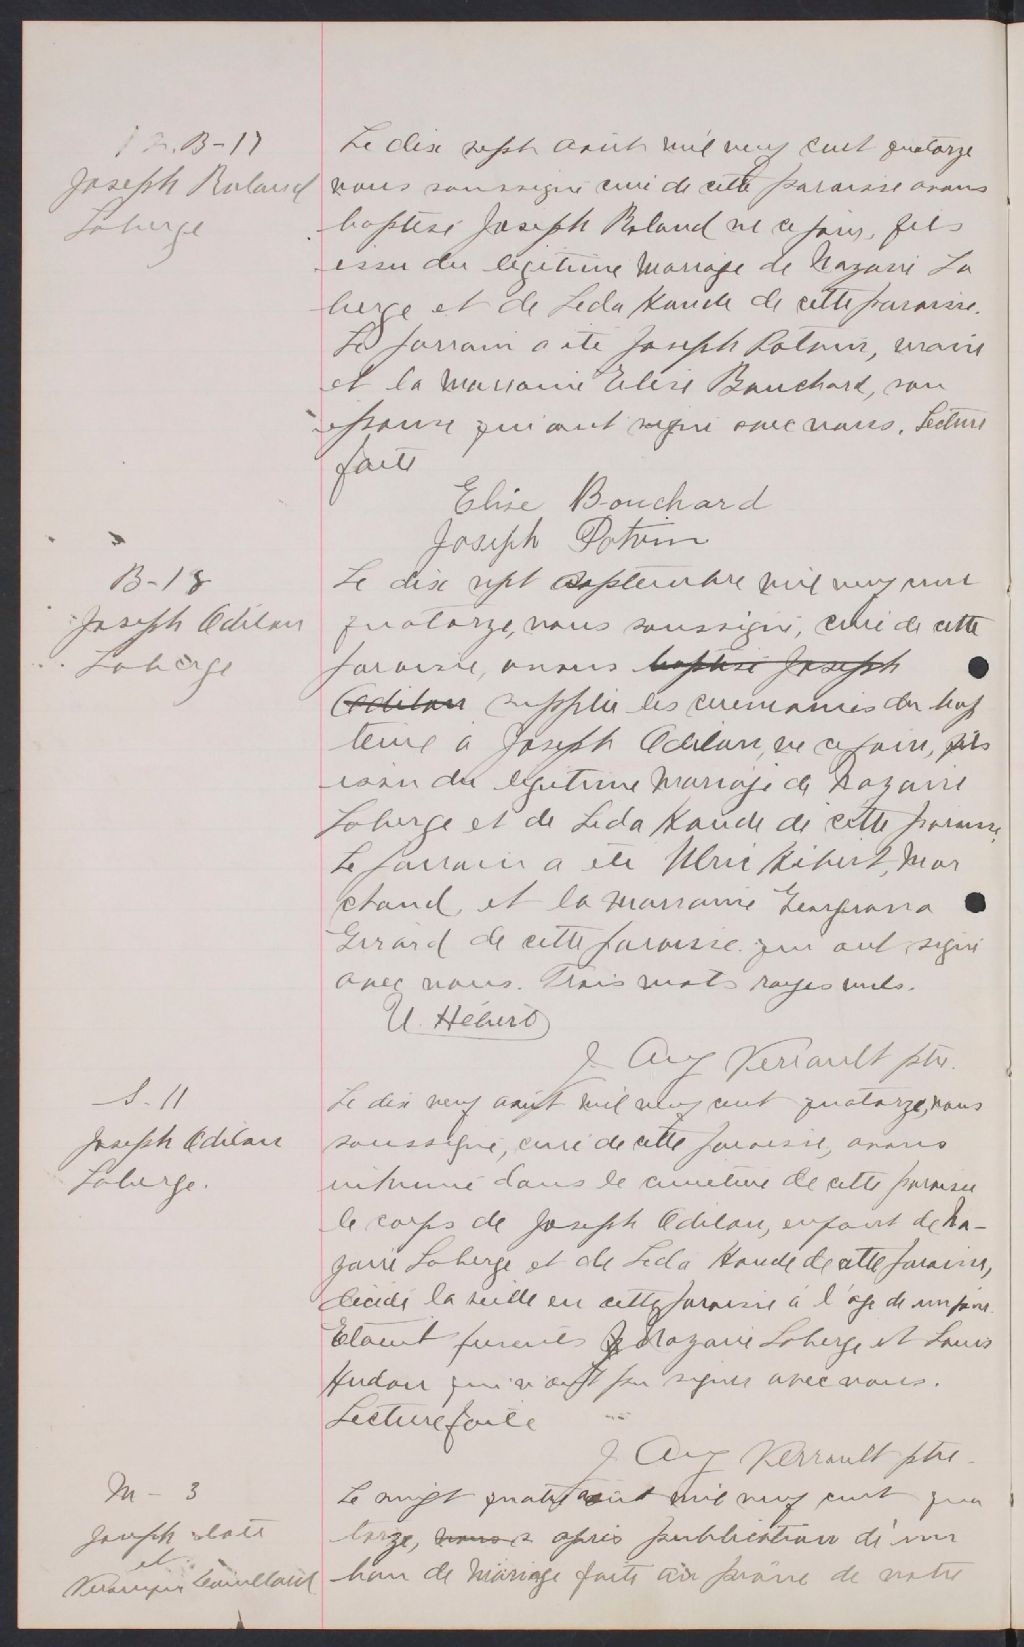 B-17
Joseph Roland
Laberge
Le dix sept août mil neuf cent quatorze
nous soussigné curé de cette paroisse avons
baptisé Joseph Roland né ce jour, fils
issu du légitime mariage de Nazaire La
berge et de Leda Hande de cette paroisse.
Le parrain a été Joseph Potvin, maire
et la marraine Elise Bouchard, son
épouse qui ont signé avec nous. Lecture
faite
Elise Bouchard
Joseph Potvin
B-18
Joseph Odilon
Laberge
Le dix sept septembre mil neuf cent
quatorze, nous soussigné, curé de cette
paroisse, avons baptisé Joseph
Odilon suppléé les cérémonies du bap
teme à Joseph Odilon, né ce jour, fils
issu du légitime mariage de Nazaire
Laberge et de Leda Hande de cette paroisse.
Le parrain a été Ulric Hébert, mar
chand, et la marraine Georgianna
Girard de cette paroisse qui ont signé
avec nous. Trois mots rayés nuls.
U. Hébert
J. Aug Verrault ptre.
S. 11
Joseph Odilon
Laberge.
Le dix neuf août mil neuf cent quatorze, nous
soussigné, curé de cette paroisse, avons
inhumé dans le cimetière de cette paroisse
le corps de Joseph Odilon, enfant de Na-
zaire Laberge et de Leda Hande de cette paroisse,
décédé la veille en cette paroisse à l'age de un jour.
Etaient présents Nazaire Laberge et Louis
Hudon qui n'ont pu signer avec nous.
Lecture faite
J. Aug Verrault ptre.
M - 3
Joseph
et
Le vingt quatre août mil neuf cent qua
torze, nous après publication d'un
ban de mariage faite au prône de notre